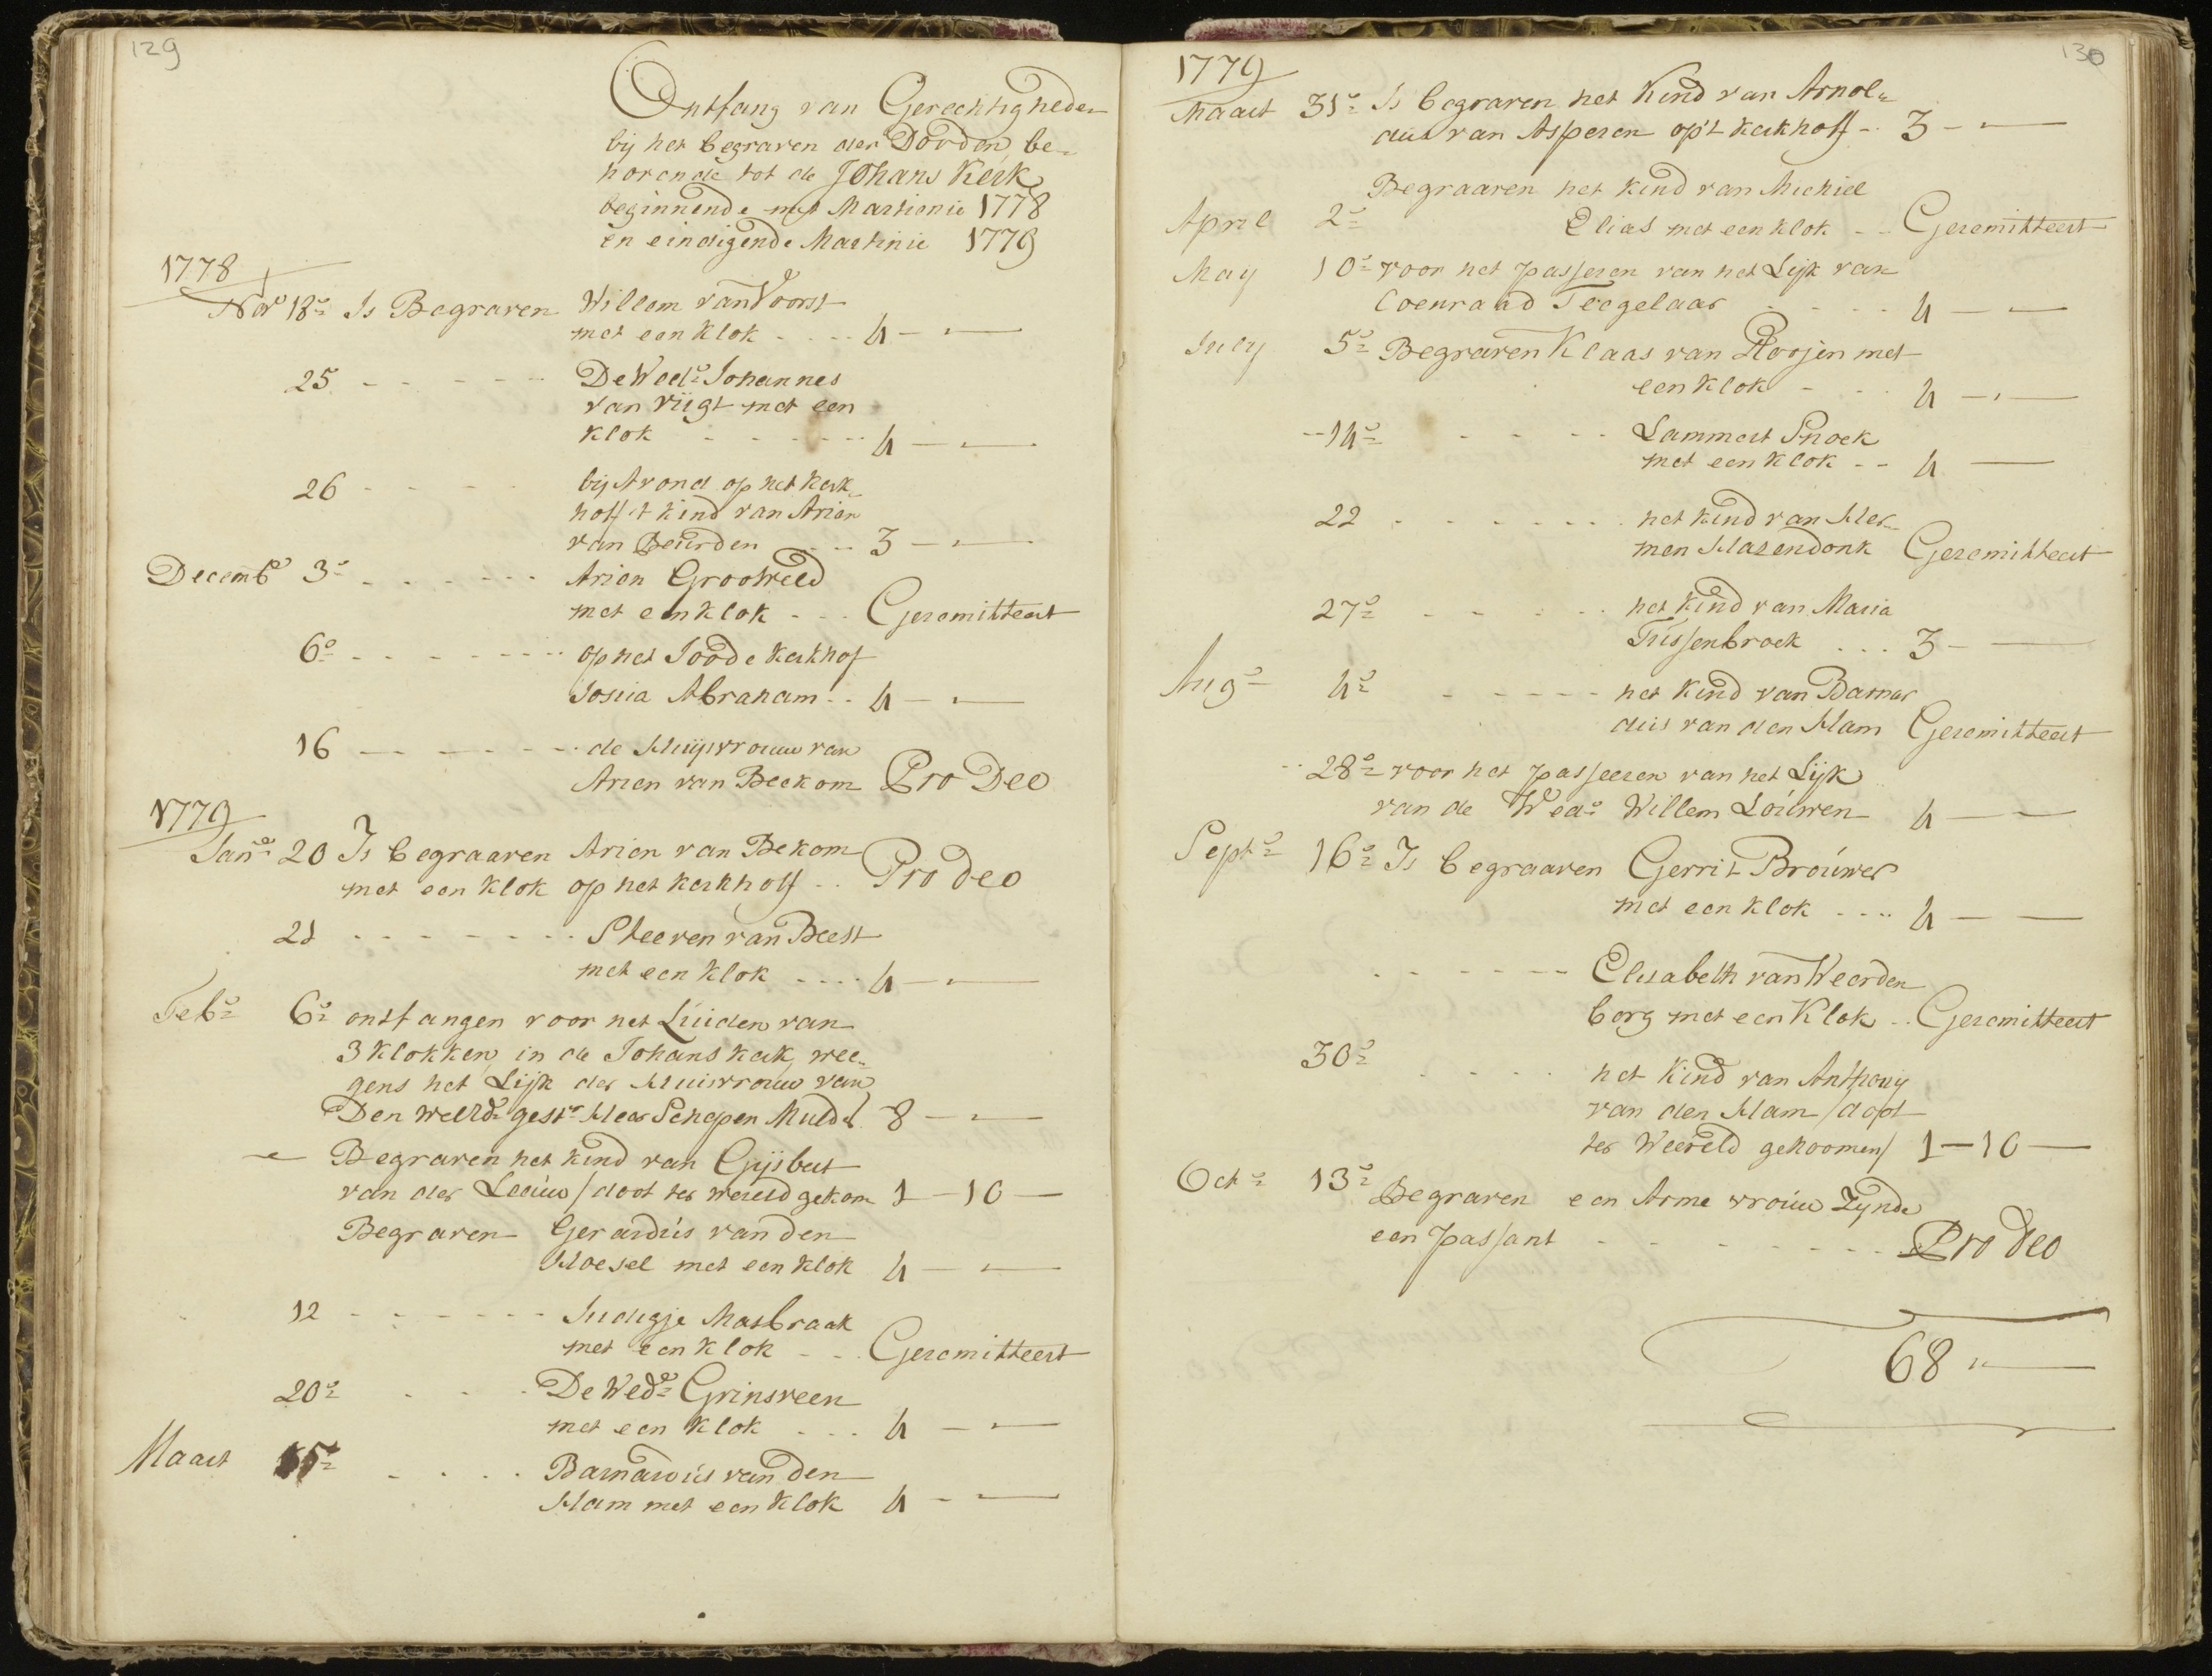 129
Ontfang van Gerechtigheden
bij het begraven der Dooden, be-
horende tot de Johans Kerk
beginnende met Martienie 1778
en eindigende Martinie 1779
1778
Novr 18e Is Begraven Willem van Voorst
met een klok .... 4 - -
25 - - - - - De Wede Johannes
van Vugt met een
klok - - - - - 4 - -
26 - - - - bij Avond op het kerk-
hoff 't kind van Arien
van Beurden - - - 3 - -
Decembr 3e - - - - - - Arien Grootveld
met een klok - - - Geremitteert
6e - - - - - - op het Joode kerkhof
Josua Abraham - - 4 - -
16 - - - - - - de Huijsvrouw van
Arien van Beekom Pro Deo
1779
Jane 20 Is begraaven Arien van Bekom
met een klok op het kerkhoff - - Pro deo
21 - - - - - - - Steeven van Beest
met een klok .... 4 - -
Febe 6e ontfangen voor het Luiden van
3 klokken, in de Johans kerk, wee-
gens het Lijk der Huisvrouw van
Den weled gestr Heer Schepen Muld 8 - -
- Begraven het kind van Gijsbert
van der Leeuw / doot ter wereld gekom 1 - 10 -
Begraven Gerardus van den
Hoesel met een klok 4 - -
12 - - - - - - Judigje Masbraak
met een klok - - - Geremitteert
20e - - - De Wede Grinsveen
met een klok - - - 4 - -
Maart 15e - - - - Barnardus van den
Ham met een klok 4 - -
130
1779
Maart 31e Is begraven het Kind van Arnol-
dus van Asperen op't kerkhoff - 3 - -
Begraaven het kind van Michiel
April 2e Elias met een klok - - Geremitteert
May 10e voor het passeren van het Lijk van
Coenraad Teegelaar - - - - 4 - -
July 5e Begraven Klaas van Roojen met
een klok - - - 4 - -
- 14e - - - - Lammert Snoek
met een klok - - 4 -
22 - - - - - - het kind van Her-
men Hazendonk Geremitteert
27e - - - - - het kind van Maria
Tussenbroek ... 3 - -
Auge 4e - - - - - het kind van Barnar
dus van den Ham Geremitteert
- 28e voor het passeeren van het Lijk
van de Wede Willem Louwen 4 - -
Septe 16e Is begraaven Gerrit Brouwer
met een klok .... 4 - -
- - - - - - Elisabeth van Weerden
borg met een klok - - Geremitteert
30e - - - - het kind van Anthonij
van den Ham / doot
ter Weereld gekoomen / 1 - 10 -
Octe 13e Begraven een Arme vrouw Zynde
een passant - - - - - - Pro deo
68 " -